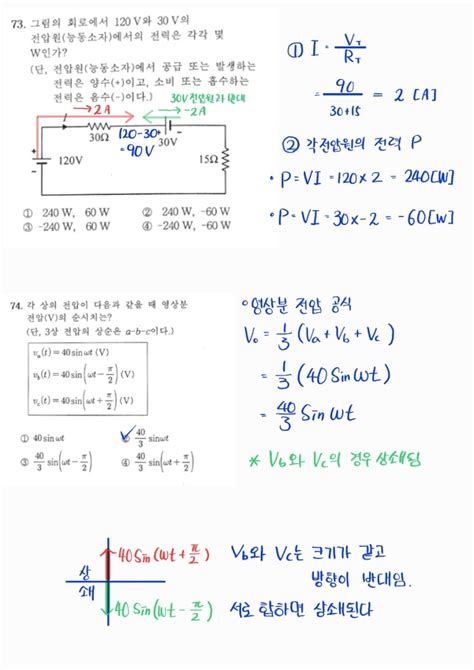 73. 그림의 회로에서 120 V와 30 V의
전압원(능동소자)에서의 전력은 각각 몇
W인가?
(단, 전압원(능동소자)에서 공급 또는 발생하는
전력은 양수(+)이고, 소비 또는 흡수하는
전력은 음수(-)이다.)
30V 전압원기 반대
→2A
←-2A
30Ω
120-30
=90V
30V
120V
15Ω
① 240 W, 60 W ② 240 W, -60 W
③ -240 W, 60 W ④ -240 W, -60 W
① I = V_T / R_T
= 90 / 30+15 = 2 [A]
② 각전압원의 전력 P
• P=VI=120×2 = 240[W]
• P=VI=30×-2 = -60[W]
74. 각 상의 전압이 다음과 같을 때 영상분
전압(V)의 순시치는?
(단, 3상 전압의 상순은 a-b-c이다.)
v_a(t)=40sinωt (V)
v_b(t)=40sin(ωt-π/2) (V)
v_c(t)=40sin(ωt+π/2) (V)
① 40sinωt ② 40/3 sinωt
③ 40/3 sin(ωt-π/2) ④ 40/3 sin(ωt+π/2)
◦영상분 전압 공식
V₀ = 1/3 (Va + Vb + Vc)
= 1/3 (40 Sin ωt)
= 40/3 Sin ωt
* Vb와 Vc의 경우 상쇄됨
40 Sin(ωt + π/2)
상
쇄
40 Sin(ωt - π/2)
Vb와 Vc는 크기가 같고
방향이 반대임.
서로 합하면 상쇄된다